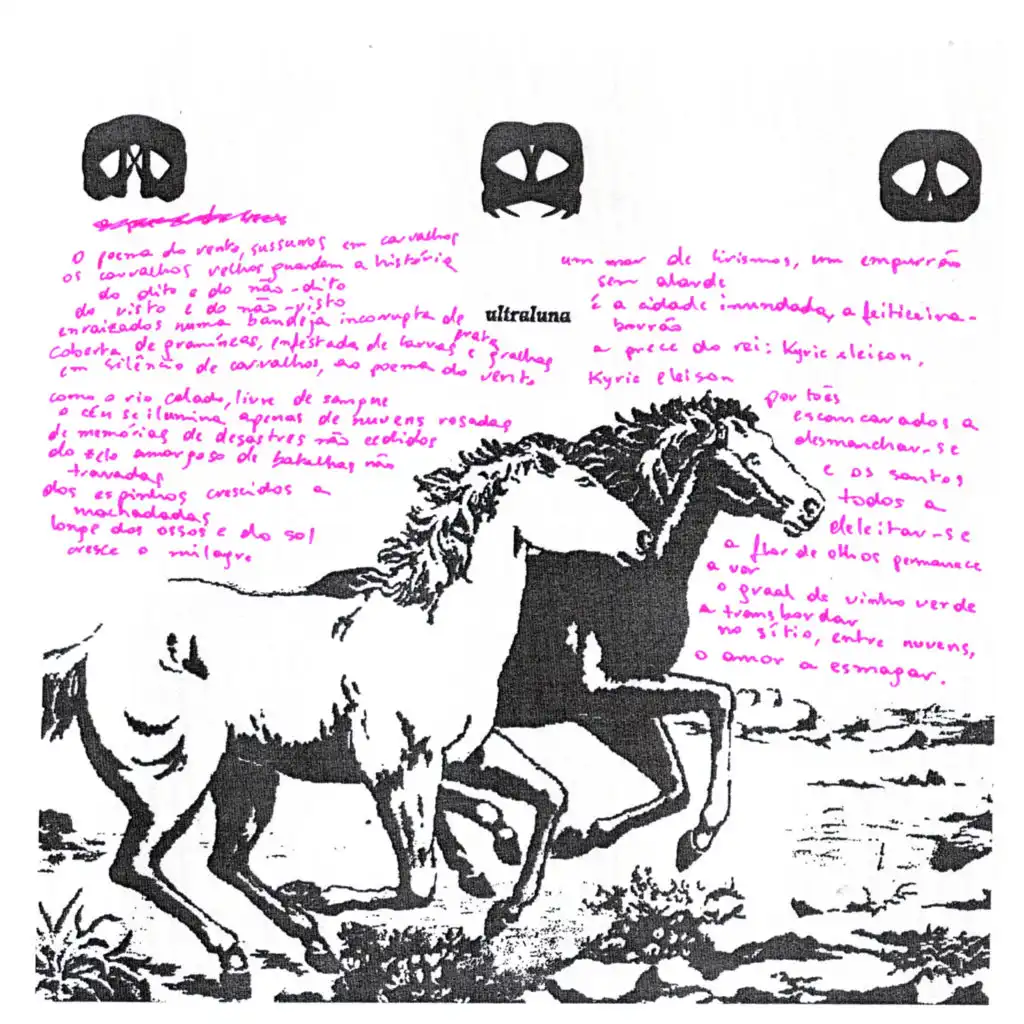 O poema do vento, sussuros em carvalhos
os carvalhos velhos guardam a história
do dito e do não-dito
do visto e do não-visto
enraizados numa bandeja incorrupta de prata
coberta de gramíneas, infestada de larvas e gralhas
em silêncio de carvalhos, ao poema do vento
como o rio calado, livre de sangue
o céu se ilumina apenas de nuvens rosadas
de memórias de desastres não cedidos
do zelo amargoso de batalhas não
travadas
dos espinhos crescidos a
machadadas
longe dos ossos e do sol
cresce o milagre
ultraluna
um mar de lirismos, um empurrão
sem alarde
é a cidade inundada, a feiticeira-
borrão
a prece do rei: Kyrie eleison,
Kyrie eleison
portões
escancarados a
desmanchar-se
e os santos
todos a
deleitar-se
a flor de olhos permanece
a ver
o graal de vinho verde
a transbordar
no sítio, entre nuvens,
o amor a esmagar.